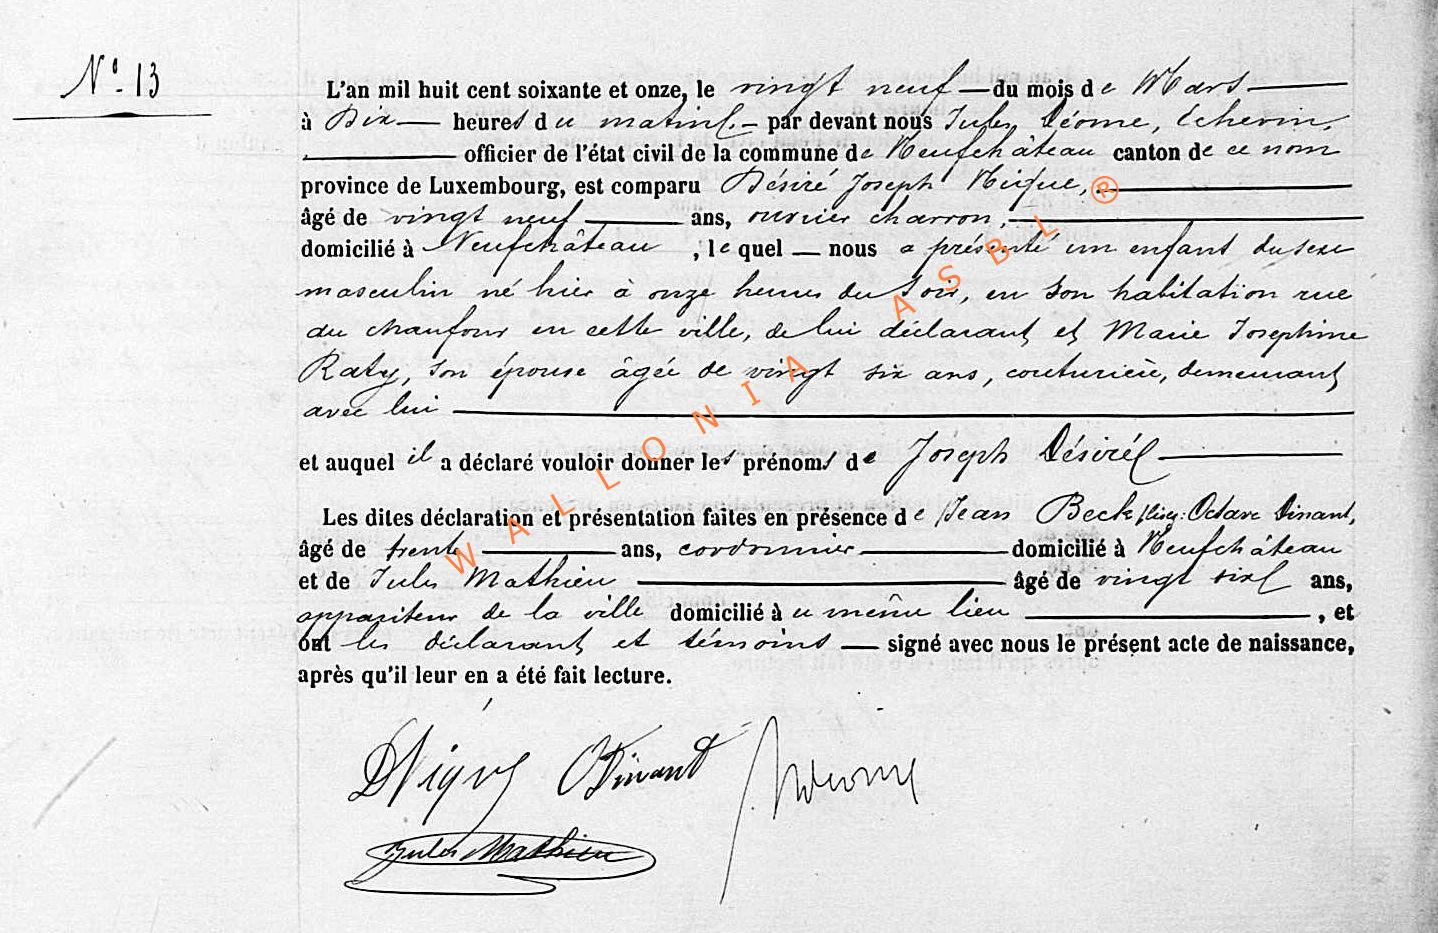 N° 13
L'an mil huit cent soixante et onze, le vingt neuf du mois de Mars
à Dix heures du matin par devant nous Jules Déome, Echevin,
officier de l'état civil de la commune de Neufchâteau canton de ce nom
province de Luxembourg, est comparu Désiré Joseph Nique,
âgé de vingt neuf ans, ouvrier charron,
domicilié à Neufchâteau, lequel nous a présenté un enfant du sexe
masculin né hier à onze heures du soir, en son habitation rue
du chaufour en cette ville, de lui déclarant et Marie Josephine
Raty, son épouse âgée de vingt six ans, couturière, demeurant
avec lui
et auquel il a déclaré vouloir donner les prénoms de Joseph Désiré
Les dites déclaration et présentation faites en présence de Jean Beck, Octave Dinant,
âgé de trente ans, cordonnier domicilié à Neufchâteau
et de Jules Mathieu âgé de vingt six ans,
appariteur de la ville domicilié au même lieu, et
ont les déclarant et témoins signé avec nous le présent acte de naissance,
après qu'il leur en a été fait lecture.
O Dinant
Jules Mathieu
WALLONIA ASBL ®